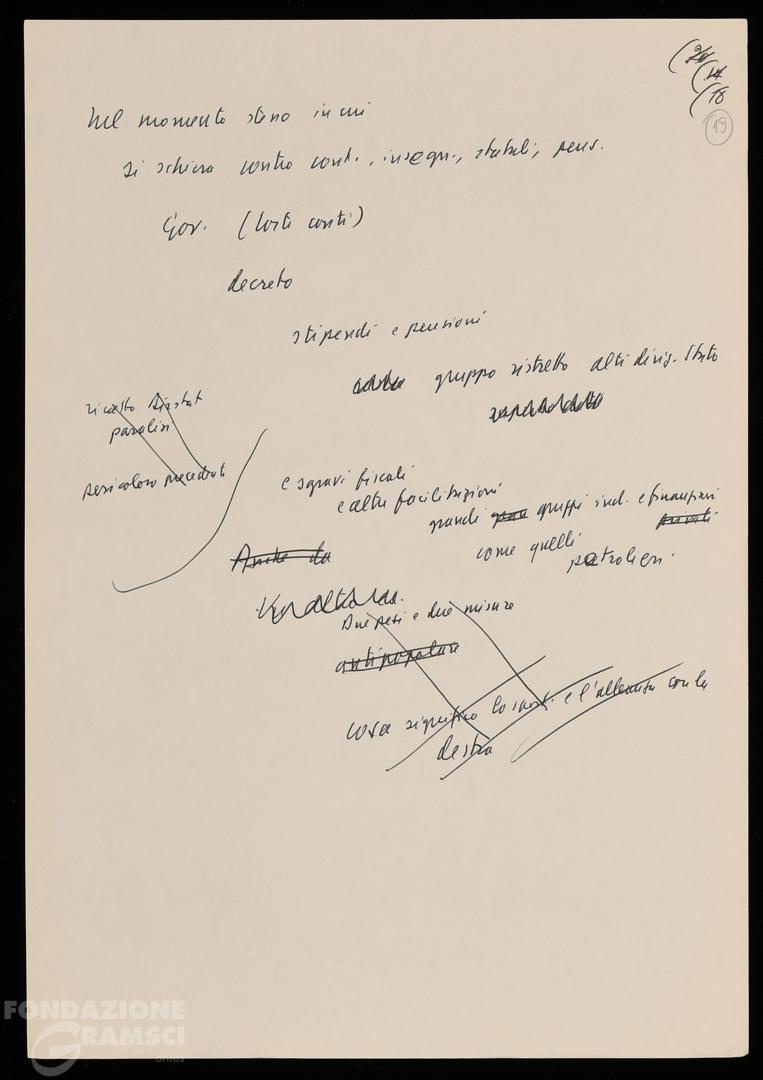 (20
(14
(18
19
Nel momento stesso in cui
si schiera contro cont., insegn., statali, pens.
Gov. (Corte conti)
decreto
stipendi e pensioni
gruppo ristretto alti dirig. Stato
ricatto Dirstat
paralisi
pericoloso precedente
e sgravi fiscali
e altre facilitazioni
grandi gruppi ind. e finanziari
privati
come quelli
petrolieri.
Anche da
Due pesi e due misure
antipopolare
cosa significa lo spost. e l'alleanza con la
destra
FONDAZIONE
GRAMSCI
onlus